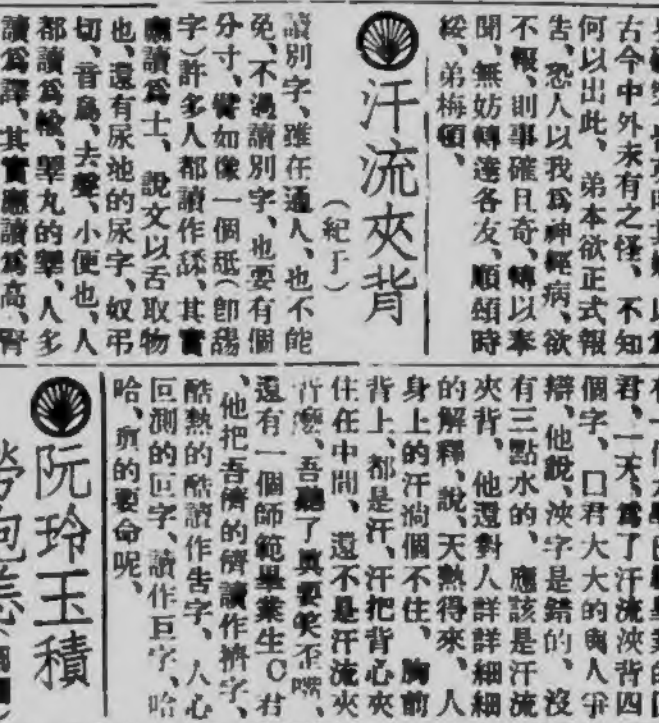 古今中外未有之怪、不知
何以出此、弟本欲正式報
告、恐人以我爲神經病、欲
不報、則事確且奇、轉以奉
聞、無妨轉達各友、順頌時
綏、弟梅頓、
汗流夾背
(紀于)
讀別字、雖在通人、也不能
免、不過讀別字、也要有個
分寸、譬如像一個舐(卽䑛
字)許多人都讀作舔、其實
應讀爲士、說文以舌取物
也、還有尿地的尿字、奴弔
切、音鳥、去聲、小便也、人
都讀爲、睪丸的睪、人多
讀爲譯、其實應讀爲高、腎
君、一天、爲了汗流浹背四
個字、口君大大的與人爭
辯、他說、浹字是錯的、沒
有三點水的、應該是汗流
夾背、他還對人詳詳細細
的解釋、說、天熱得來、人
身上的汗淌個不住、胸前
背上、都是汗、汗把背心夾
住在中間、還不是汗流夾
背麽、吾聽了眞要笑歪嘴、
還有一個師範畢業生C君
、他把吾儕的儕讀作擠字、
酷熱的酷讀作告字、人心
叵測的叵字、讀作巨字、哈
哈、眞的要命呢、
阮玲玉積
勞抱恙